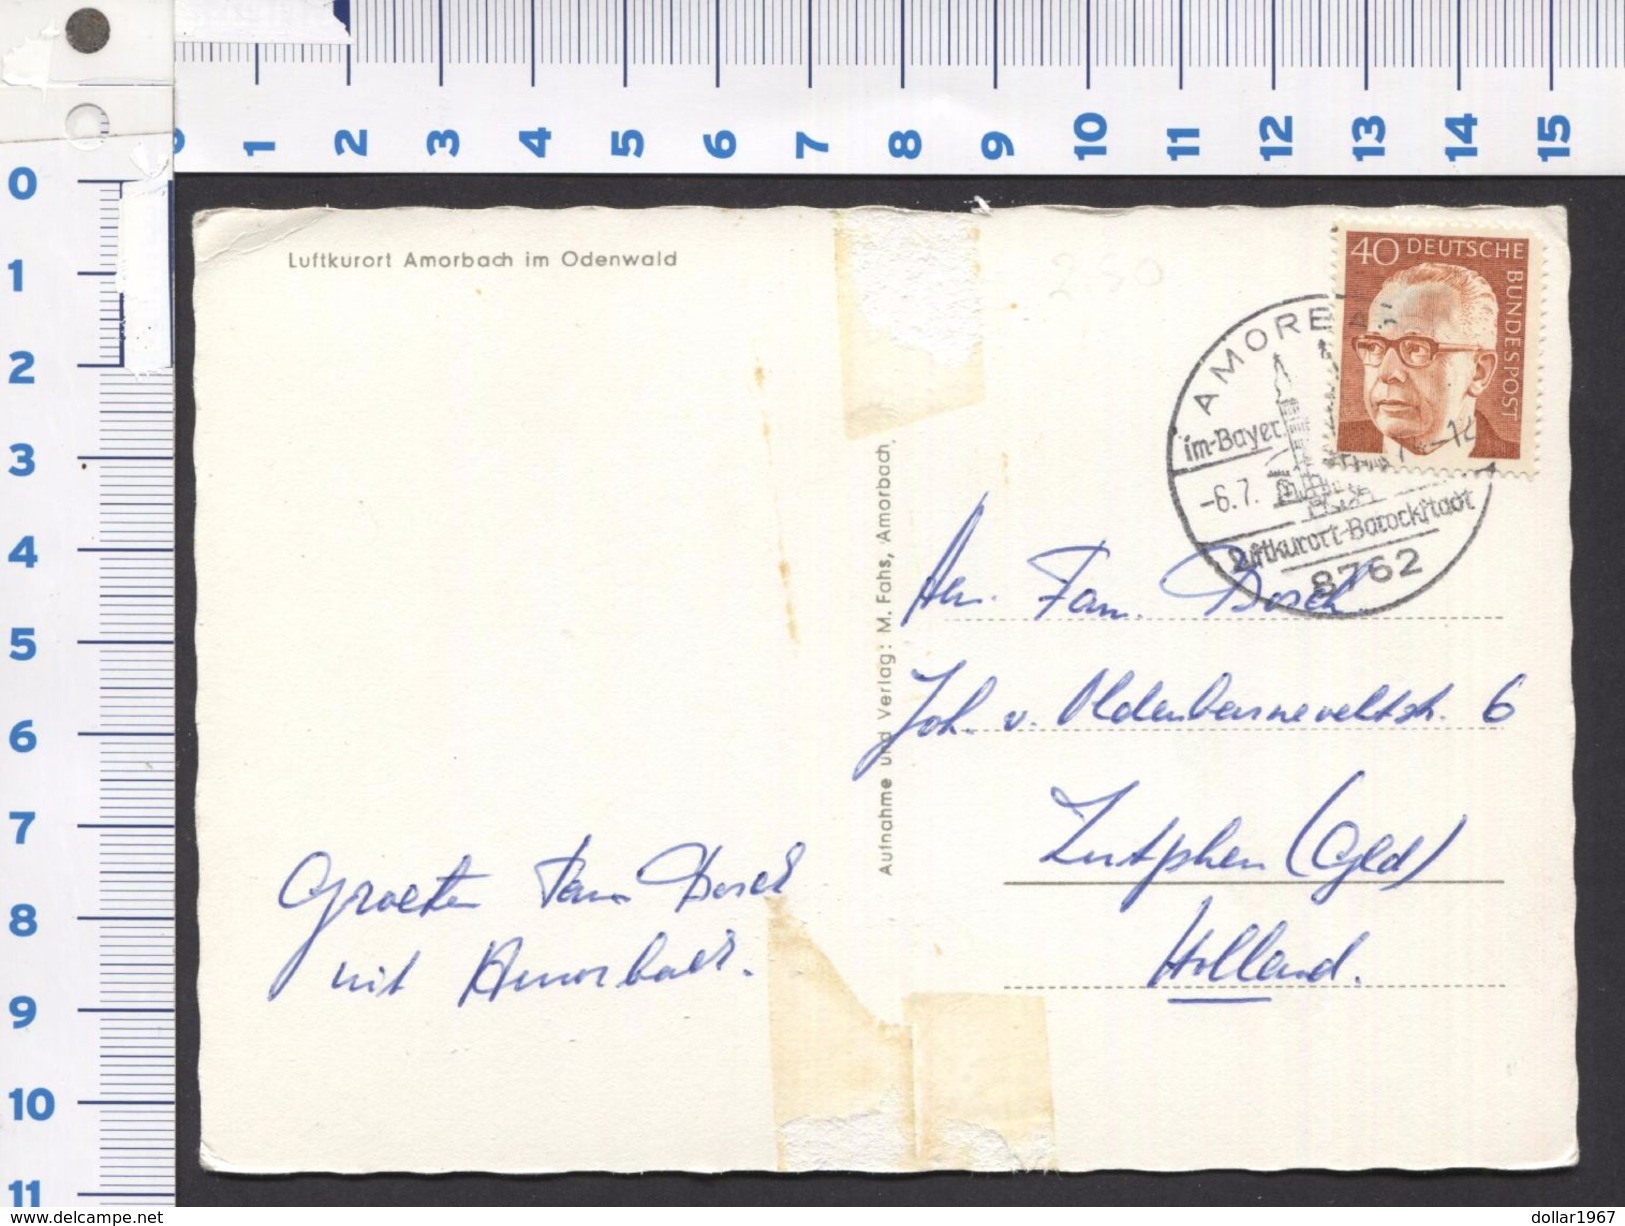 0 1 2 3 4 5 6 7 8 9 10 11 12 13 14 15
0
1
2
3
4
5
6
7
8
9
10
11
Luftkurort Amorbach im Odenwald
40 DEUTSCHE
BUNDESPOST
AMORB
im-Bayer.
-6.7.
Luftkurort-Barockstadt
8762
Aufnahme und Verlag: M. Fahs, Amorbach,
Fam. Bosch.
Joh. v. Oldenbarneveltstr. 6
Zutphen (Gld)
Holland.
Groeten Fam Bosch
uit Amorbach.
www.delcampe.net
dollar1967